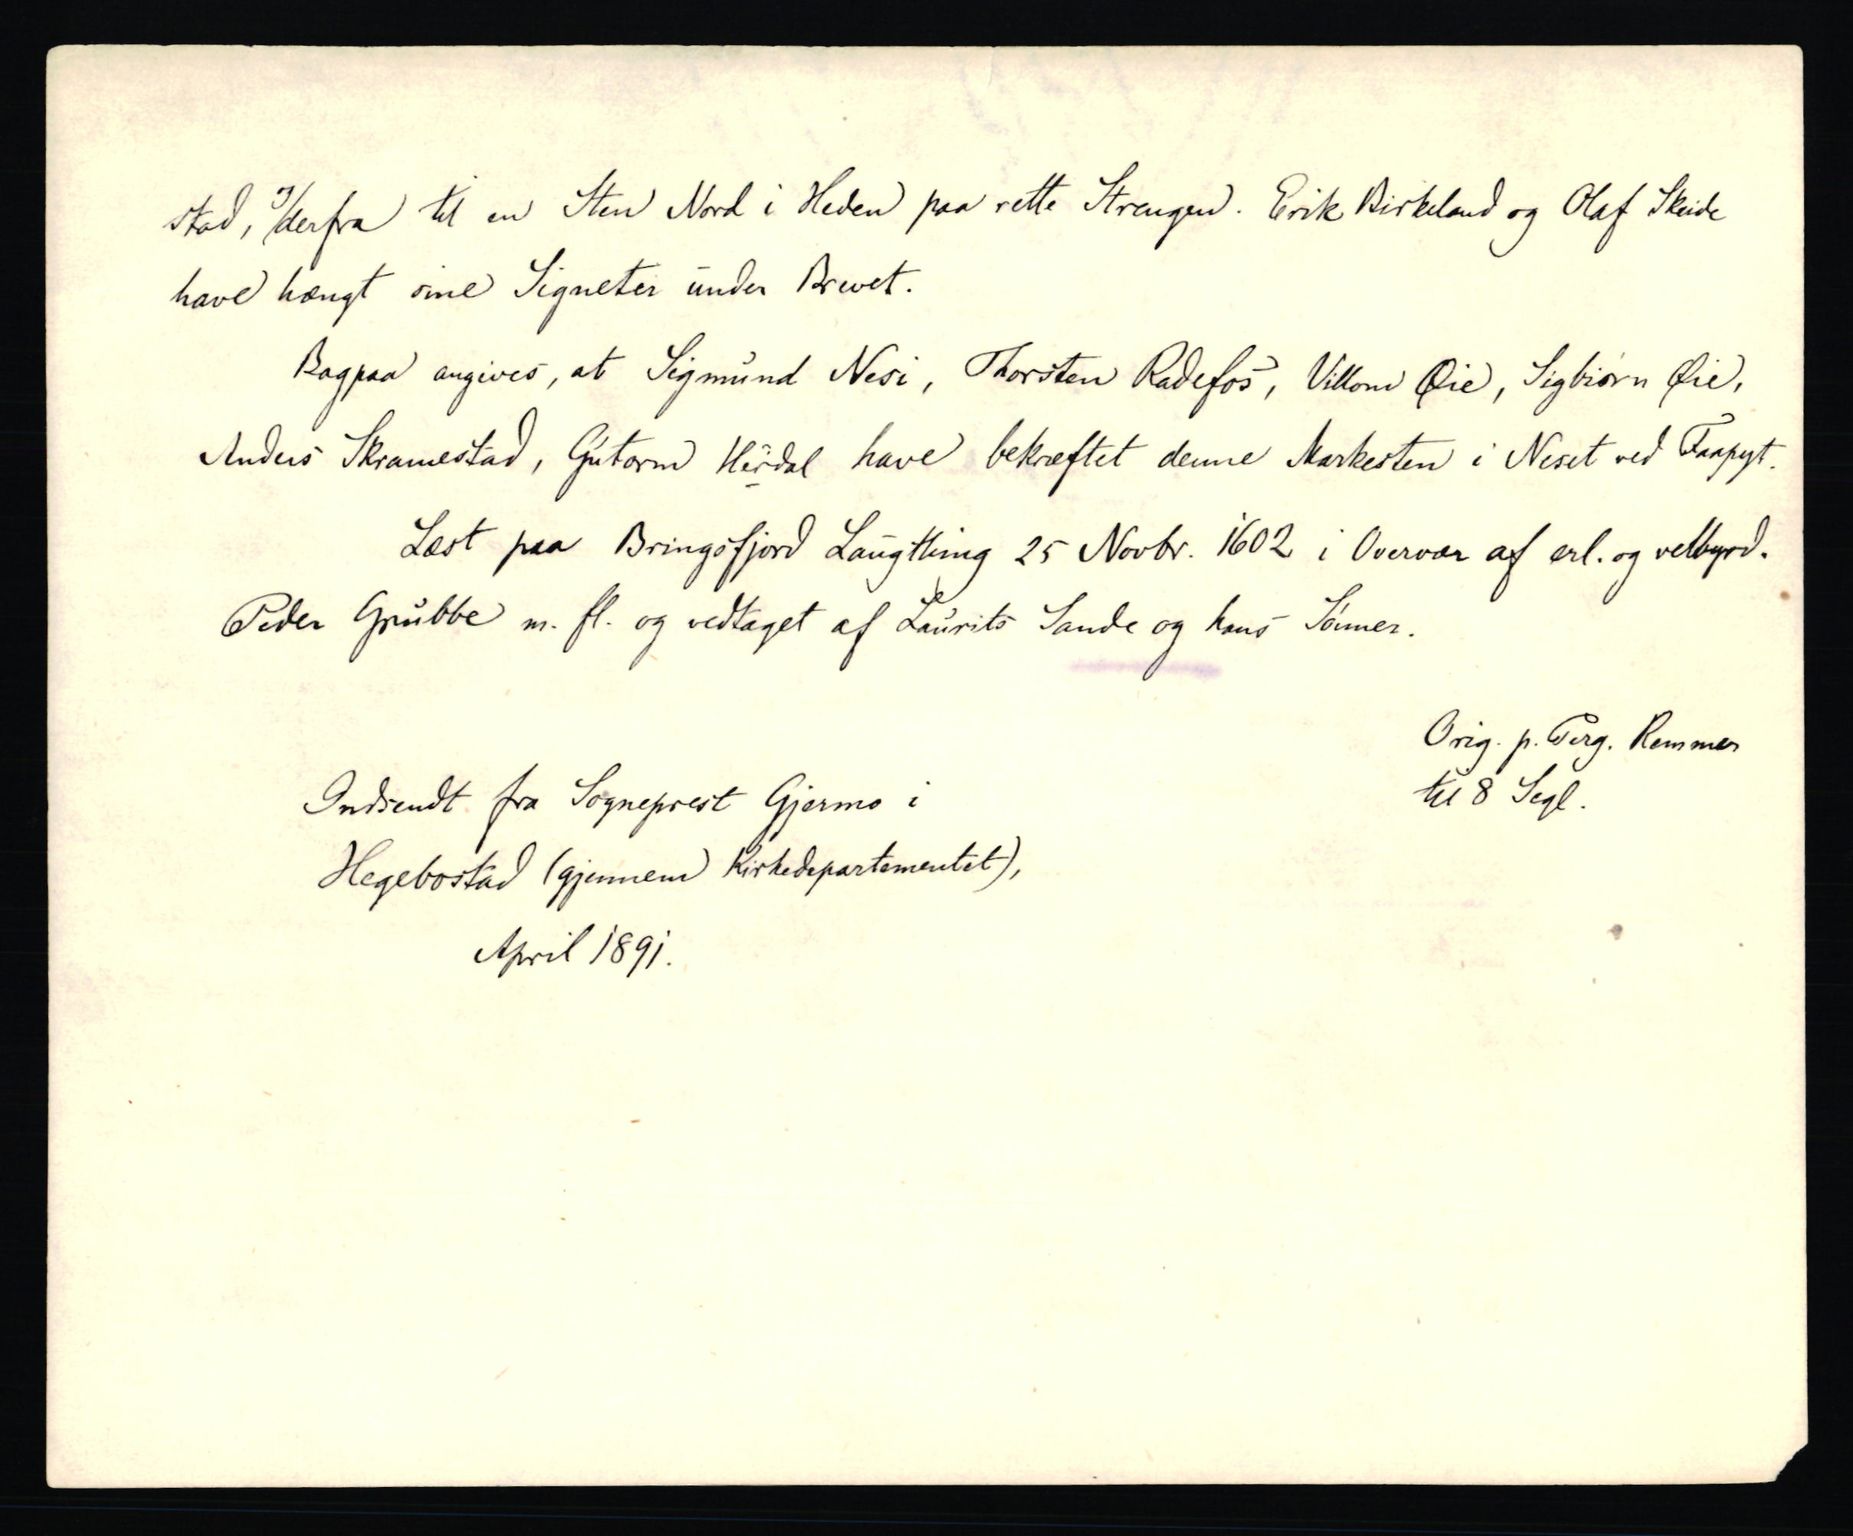 stad, og derfra til en Sten Nord i Heden paa rette Strengen. Erik Birkeland og Olaf Skeide
have hængt sine Signeter under Brevet.
Bagpaa angives, at Sigmund Nesi, Thorsten Radefos, Villom Øie, Sigbiørn Øie,
Anders Skramestad, Gutorm Hérdal have bekræftet denne Markesten i Neset ved Faapyt.
Læst paa Bringsfjord Laugthing 25 Novbr. 1602 i Overvær af erl. og velbyrd.
Peder Grubbe m. fl. og vedtaget af Laurits Sande og hans Sønner.
Orig. p. Perg. Remmer
til 8 Segl.
Indsendt fra Sogneprest Gjermo i
Hegebostad (gjennem Kirkedepartementet),
April 1891.